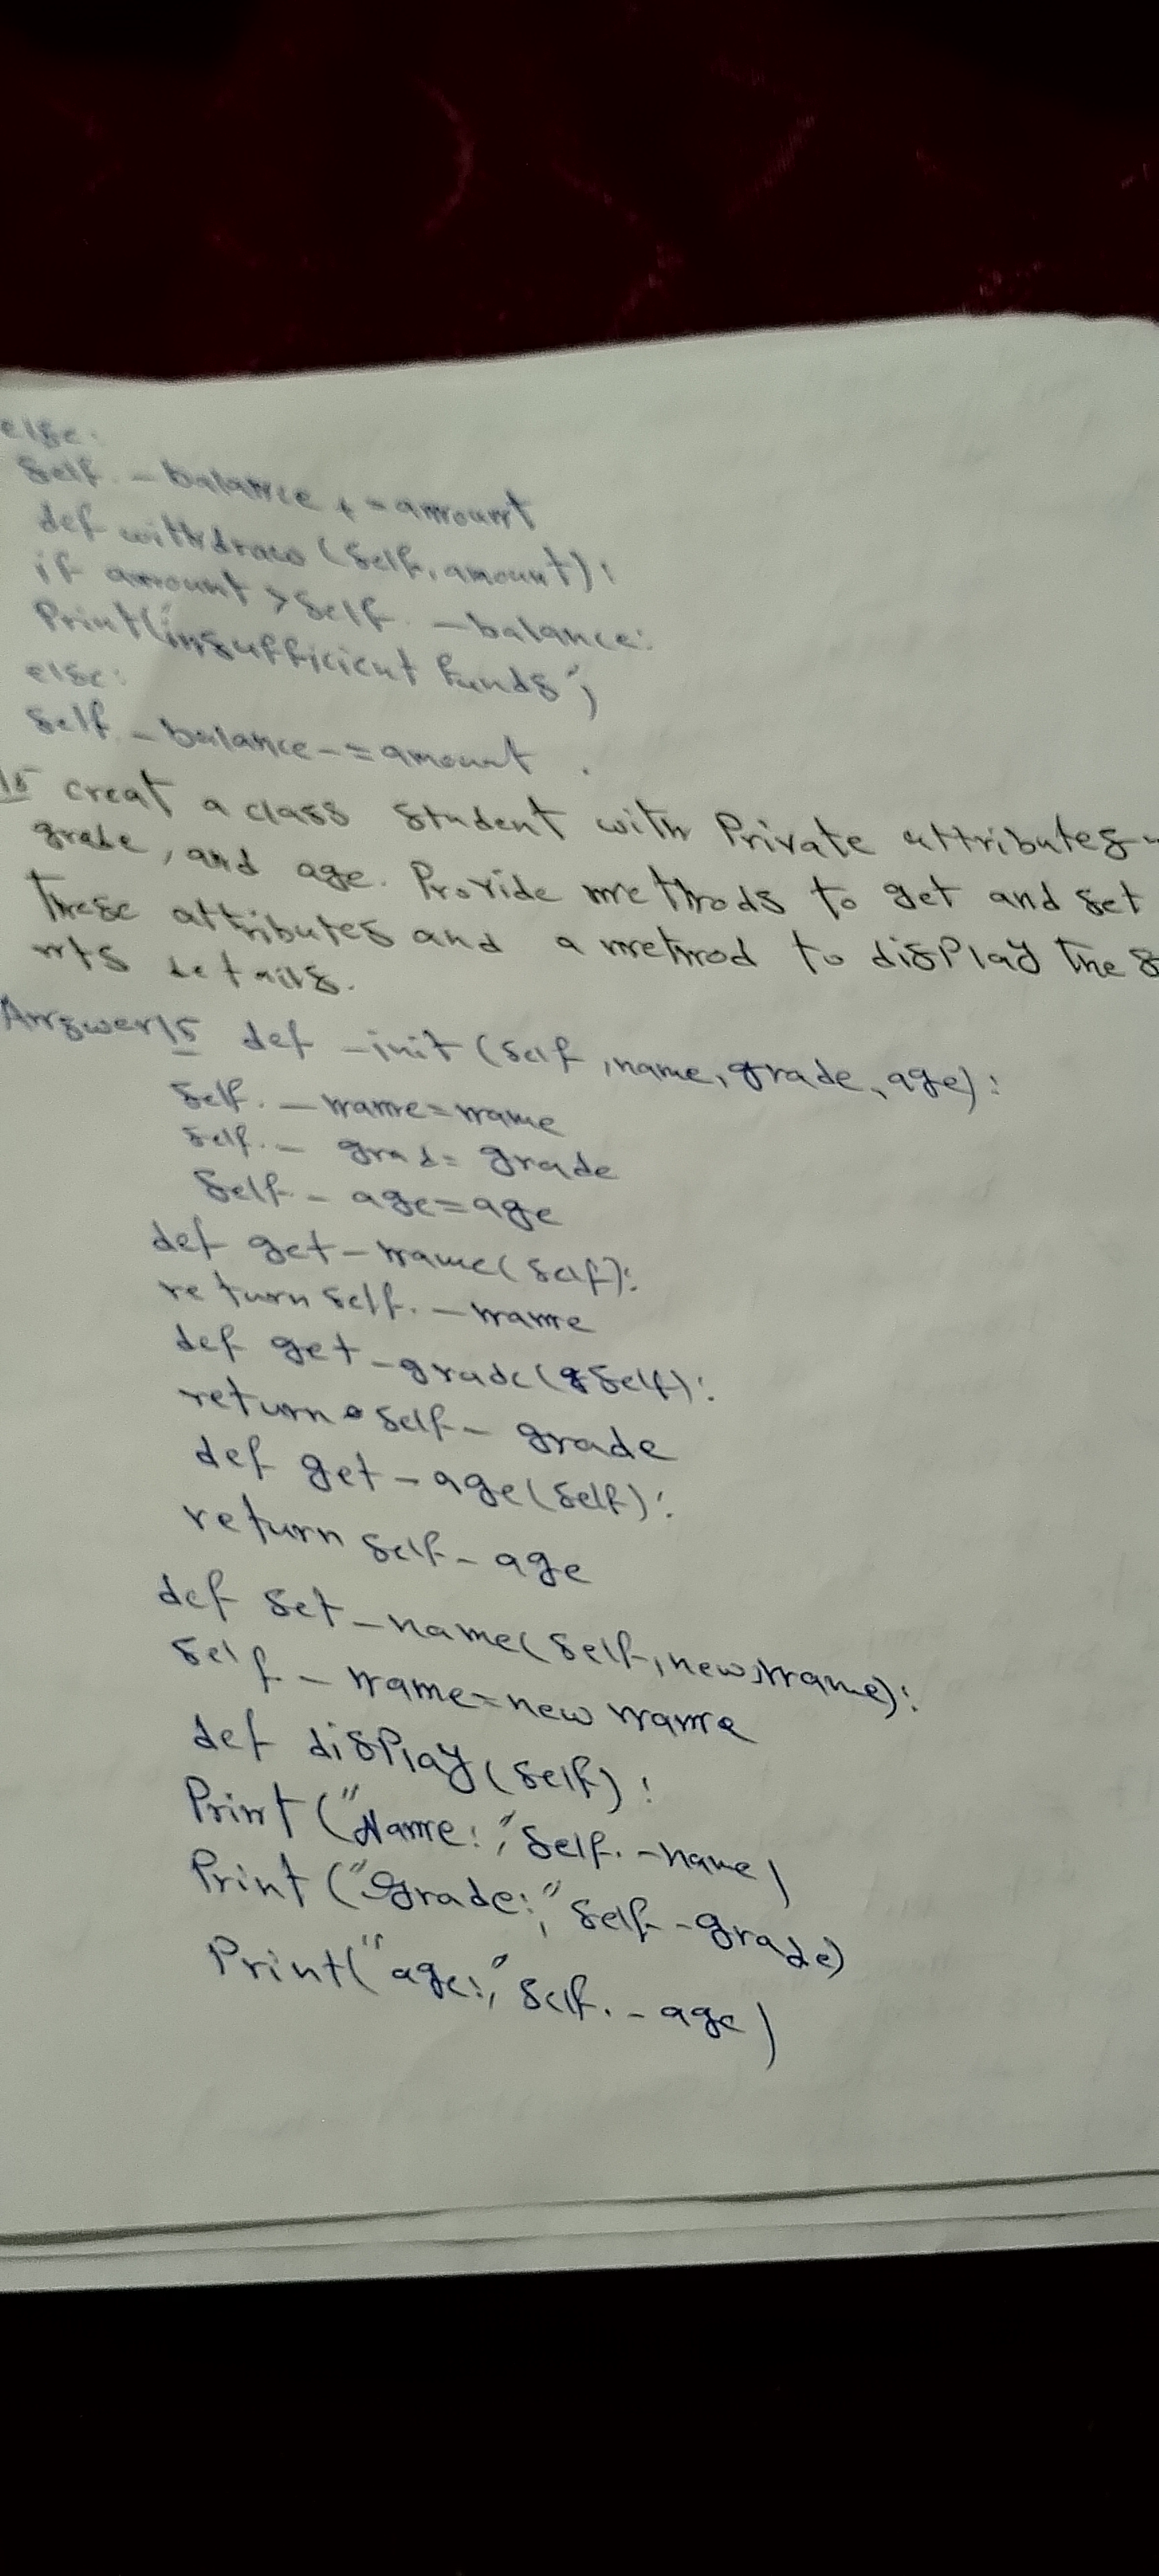 else:
self. _balance += amount
def withdraw (self, amount):
if amount > self. _balance:
Print("insufficient funds")
else:
self. _balance -= amount.
15 creat a class student with Private attributes
grade, and age. Provide methods to get and set
these attributes and a method to display the s
nts details.
Answer 15 def _init (self, name, grade, age):
self. _name = name
self. _ grad = grade
self _ age = age
def get_name(self):
return self. _name
def get_grade(self):
return self_ grade
def get_age(self):
return self_age
def set_name(self, new, name):
self. _ name = new name
def display(self):
Print ("Name:," self. _name)
Print ("grade:," self._grade)
Print("age:," self. _age)